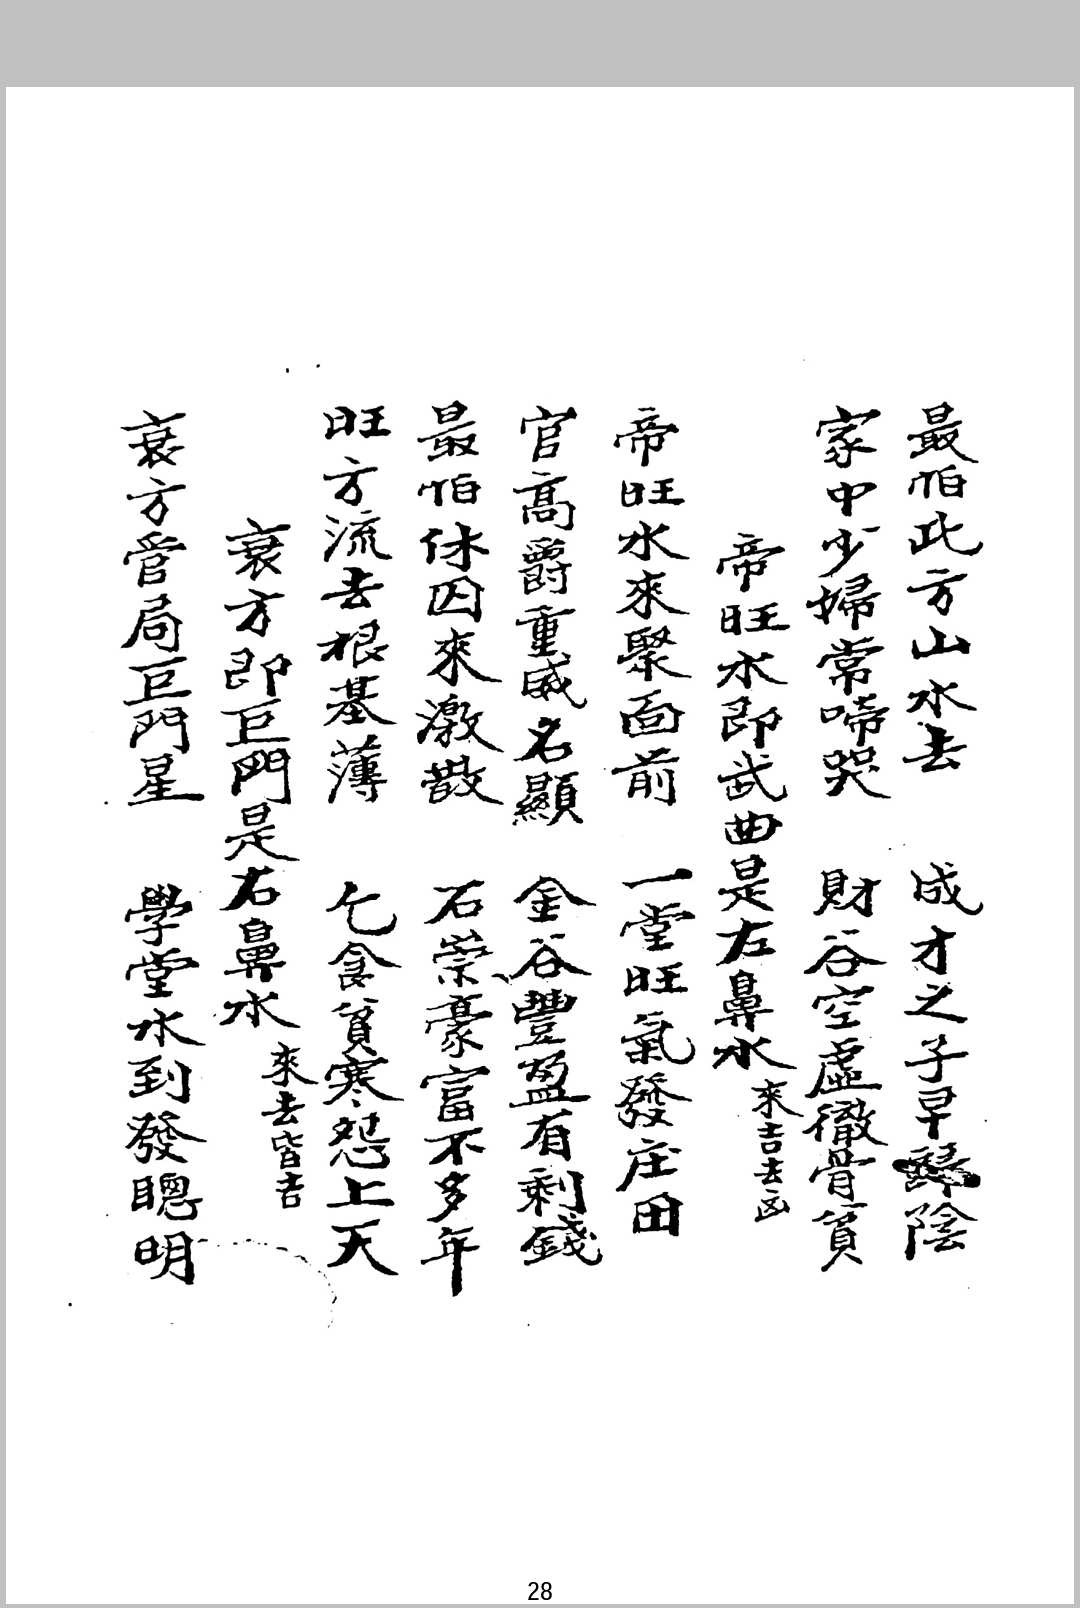 最怕此方山水去 成才之子早歸陰
家中少婦常啼哭 財谷空虛徹骨貧
帝旺水即武曲是左鼻水 來吉去凶
帝旺水來聚面前 一堂旺氣發庄田
官高爵重威名顯 金谷豐盈有剩錢
最怕休囚來激散 石崇豪富不多年
旺方流去根基薄 乞食貧寒怨上天
衰方即巨門是右鼻水 來去皆吉
衰方管局巨門星 學堂水到發聰明
28